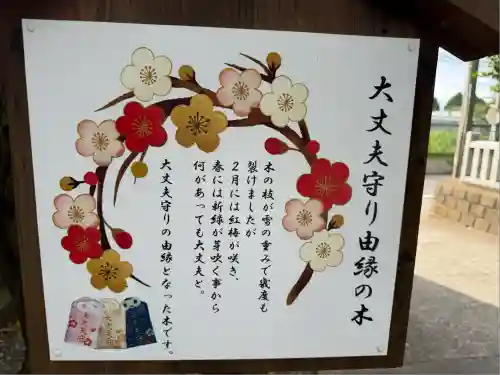 大丈夫守り由縁の木
木の枝が雪の重みで幾度も
裂けましたが
2月には紅梅が咲き、
春には新緑が芽吹く事から
何があっても大丈夫と。
大丈夫守りの由縁となった木です。